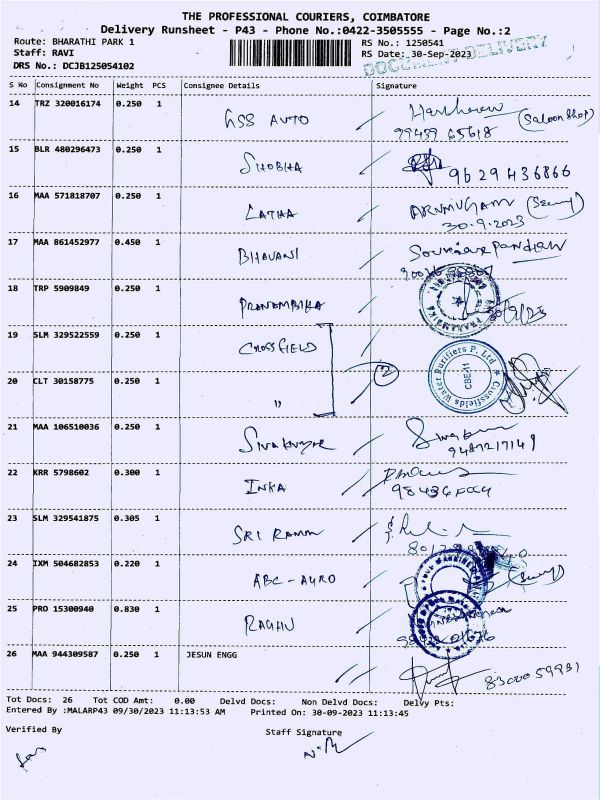 THE PROFESSIONAL COURIERS, COIMBATORE
Delivery Runsheet - P43 - Phone No.:0422-3505555 - Page No.:2
Route: BHARATHI PARK 1 RS No.: 1250541
Staff: RAVI RS Date: 30-Sep-2023
DRS No.: DCJB125054102 DOCUMENT DELIVERY
S No Consignment No Weight PCS Consignee Details Signature
14 TRZ 320016174 0.250 1 GSS AUTO (Saloon Shop)
99459 65618
15 BLR 480296473 0.250 1 SHOBHA 9629436866
16 MAA 571818707 0.250 1 LATHA ARUMUGAM
30.9.2023
17 MAA 861452977 0.450 1 BHAVANI Soundara Pandian
18 TRP 5909849 0.250 1 PRANAMBIKA
19 SLM 329522559 0.250 1 CROSSFIELD
Crossfields Water Purifiers P. Ltd
CBE-11
20 CLT 30158775 0.250 1 " 2
21 MAA 106510036 0.250 1 Sivakumar
9487217149
22 KRR 5798602 0.300 1 INKA
23 SLM 329541875 0.305 1 SRI RAMM
24 IXM 504682853 0.220 1 ABC-AGRO
25 PRO 15300940 0.830 1 RAGHU
26 MAA 944309587 0.250 1 JESUN ENGG 8300059931
Tot Docs: 26 Tot COD Amt: 0.00 Delvd Docs: Non Delvd Docs: Delvy Pts:
Entered By :MALARP43 09/30/2023 11:13:53 AM Printed On: 30-09-2023 11:13:45
Verified By Staff Signature